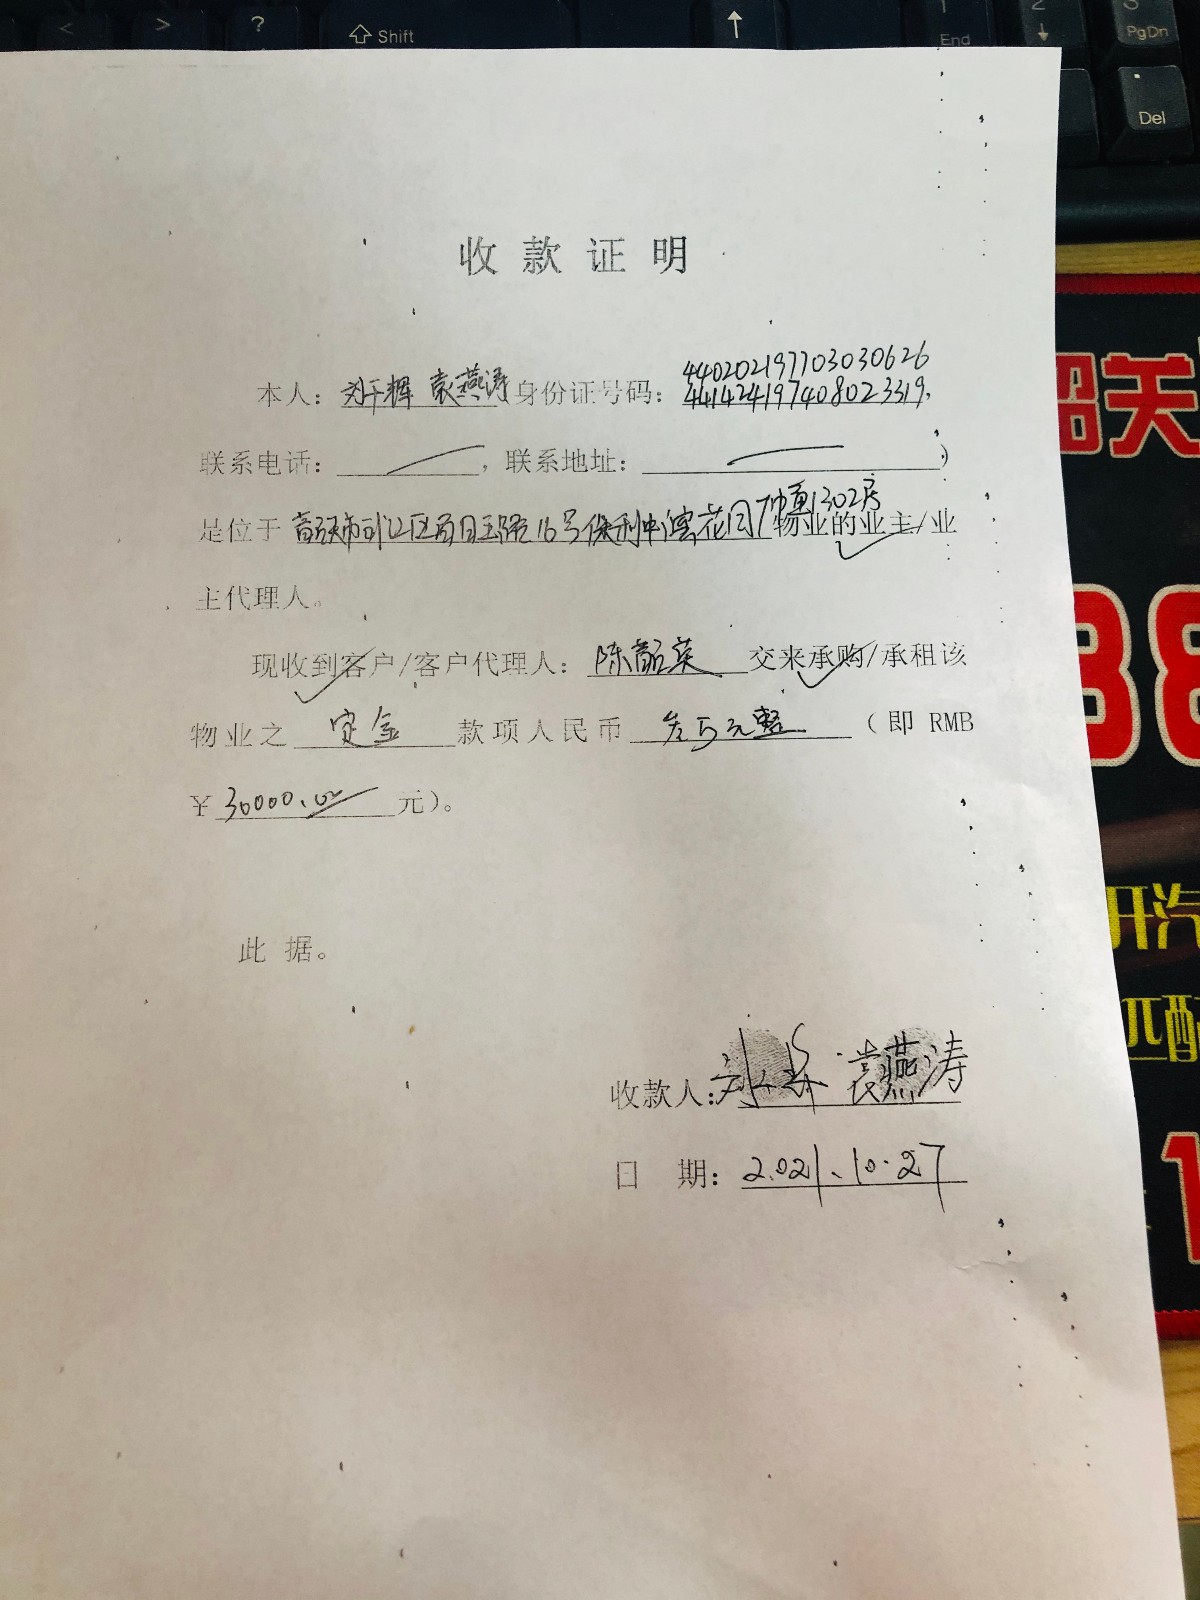 <
>
?
⇧ Shift
↑
1 End
2 ↓
3 PgDn
Del
收款证明
440202197703030626
本人：刘干辉 袁燕涛 身份证号码：441424197408023319,
联系电话：，联系地址：)
1302房
是位于 韶关市浈江区 16号保利中 花园 物业的业主/业
主代理人。
现收到客户/客户代理人：陈韶英 交来承购/承租该
物业之 定金 款项人民币 叁万元整 （即 RMB
¥30000.00 元）。
此 据。
收款人：刘 袁燕涛
日 期：2021.10.27
韶关
88
开汽
匹配
1